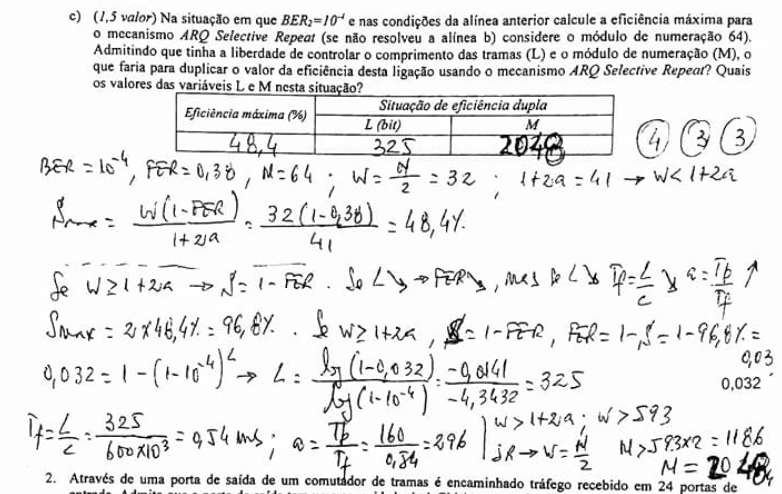 c) (1,5 valor) Na situação em que BER₂=10⁻⁴ e nas condições da alínea anterior calcule a eficiência máxima para
o mecanismo ARQ Selective Repeat (se não resolveu a alínea b) considere o módulo de numeração 64).
Admitindo que tinha a liberdade de controlar o comprimento das tramas (L) e o módulo de numeração (M), o
que faria para duplicar o valor da eficiência desta ligação usando o mecanismo ARQ Selective Repeat? Quais
os valores das variáveis L e M nesta situação?
Eficiência máxima (%) Situação de eficiência dupla
L (bit) M
48,4 325 2048
4 3 3
BER = 10⁻⁴, FER = 0,38, M=64 ; W = M/2 = 32 ; 1+2a = 41 → W < 1+2a
Smax = W(1-FER)/1+2a = 32(1-0,38)/41 = 48,4%.
Se W ≥ 1+2a → S = 1-FER. Se L↘ → FER↘, mas se L↘ Tf = L/C ↘ a = Tp/Tf ↑
Smax = 2×48,4% = 96,8%. Se W ≥ 1+2a, S = 1-FER, FER = 1-S = 1-96,8% =
0,03
0,032 = 1-(1-10⁻⁴)ᴸ → L = log(1-0,032)/log(1-10⁻⁴) = -0,0141/-4,3432 = 325
0,032
Tf = L/C = 325/600×10³ = 0,54 ms ; a = Tp/Tf = 160/0,54 = 296 W > 1+2a ; W > 593
SR → W = M/2 M > 593×2 = 1186
M = 2048
2. Através de uma porta de saída de um comutador de tramas é encaminhado tráfego recebido em 24 portas de